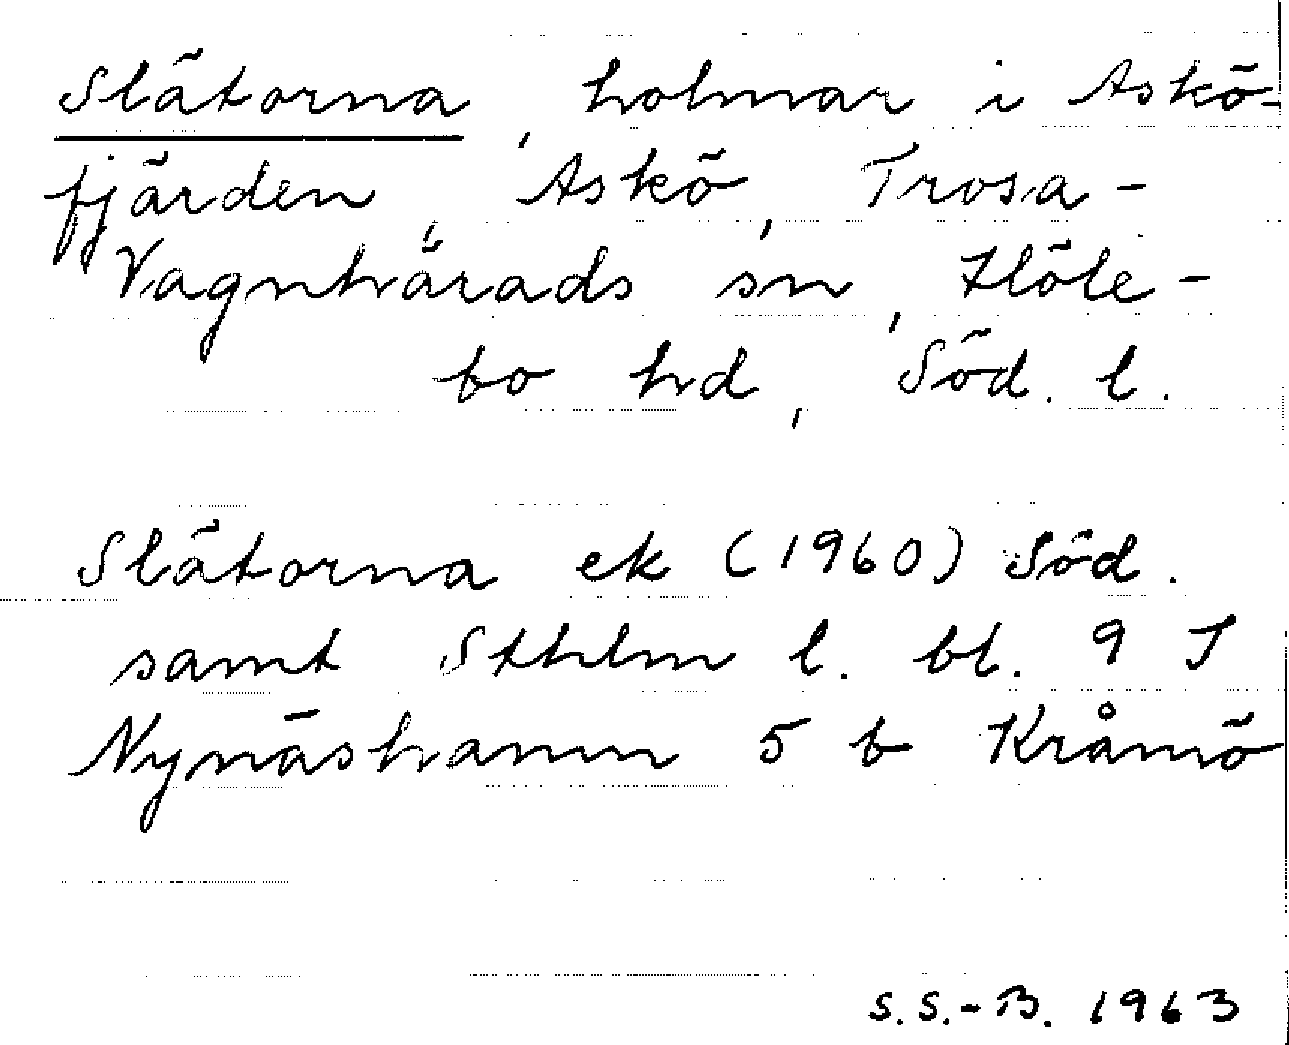 Slätorna, holmar i Askö-
fjärden, Askö, Trosa-
Vagnhärads sn, Höle-
bo hd, Söd. l.
Slätorna ek (1960) Söd.
samt Sthlm l. bl. 9 I
Nynäshamn 5 b Kråmö
S.S.-B. 1963